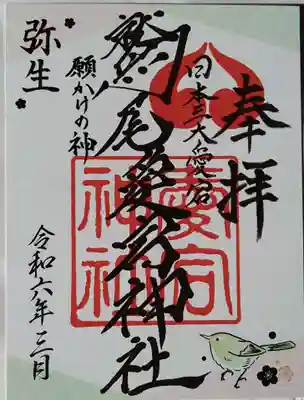 奉拝
日本三大愛宕
鷲尾愛宕神社
愛宕
神社
願かけの神
弥生
令和六年三月